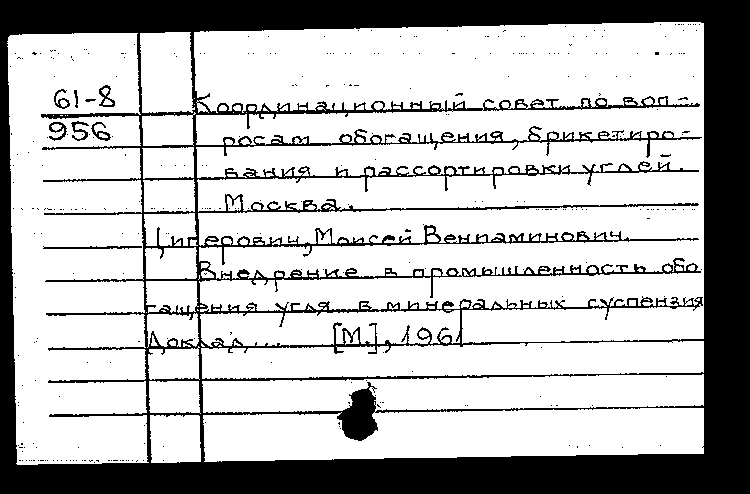 61-8
956
Координационный совет по воп-
росам обогащения, брикетиро-
вания и рассортировки углей.
Москва.
Циперович, Моисей Вениаминович.
Внедрение в промышленность обо
гащения угля в минеральных суспензия
Доклад... [М.], 1961